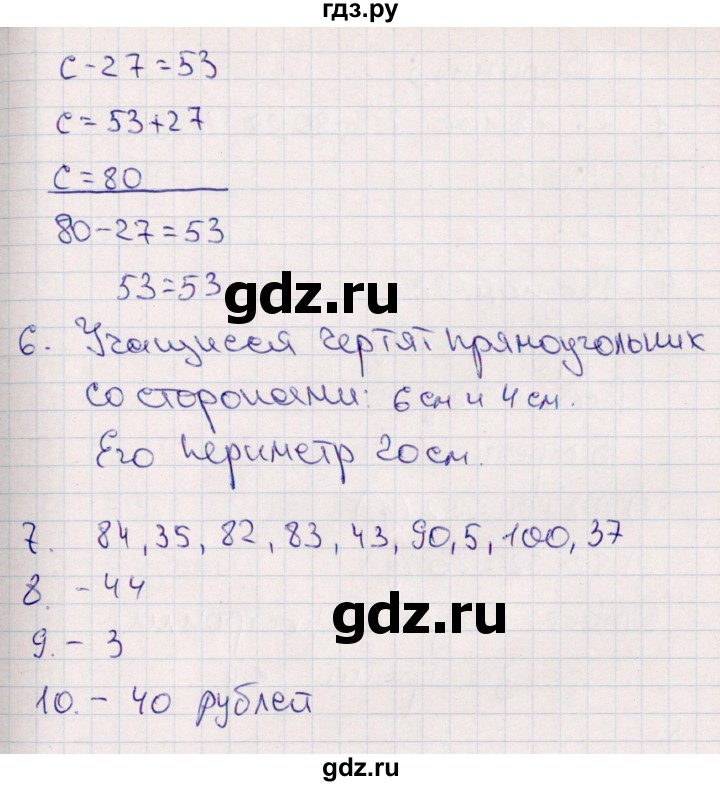 гдз.ру
с-27=53
с=53+27
с=80
80-27=53
53=53
gdz.ru
6. Учащиеся чертят прямоугольник
со сторонами: 6 см и 4 см.
Его периметр 20 см.
7. 84, 35, 82, 83, 43, 90, 5, 100, 37
8. - 44
gdz.ru
9. - 3
10. - 40 рублей
gdz.ru